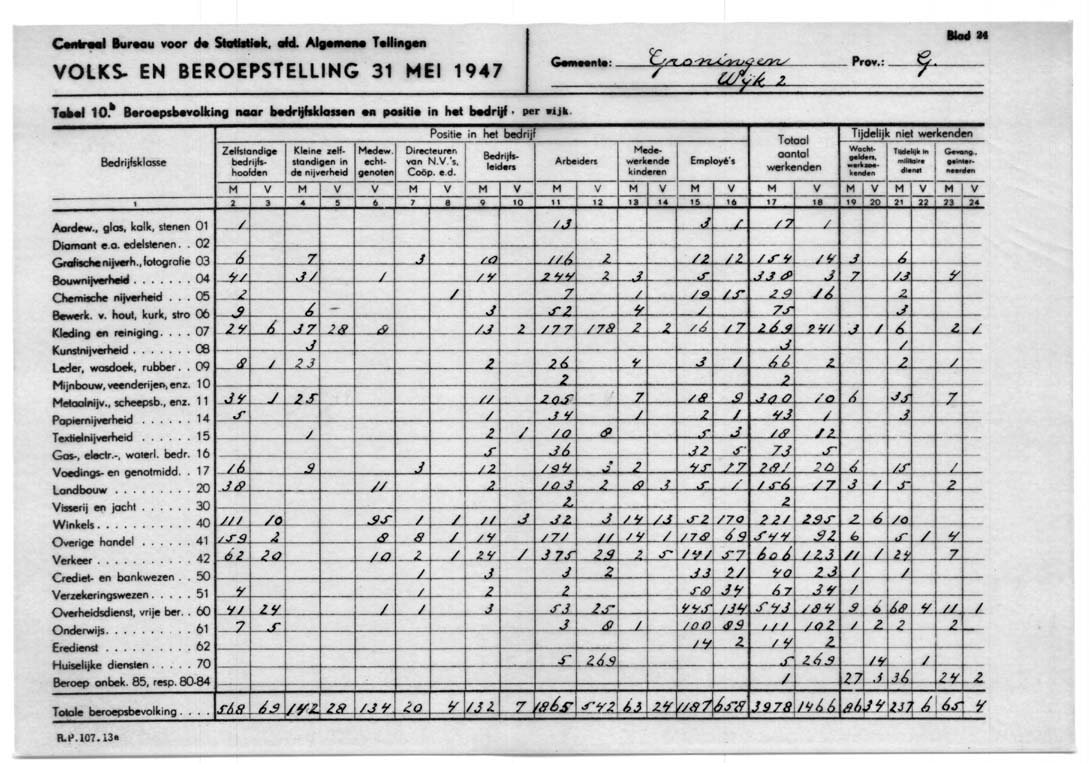 Centraal Bureau voor de Statistiek, afd. Algemene Tellingen
Blad 24
VOLKS- EN BEROEPSTELLING 31 MEI 1947
Gemeente: Groningen Prov.: G.
Wijk 2
Tabel 10.b Beroepsbevolking naar bedrijfsklassen en positie in het bedrijf, per wijk.
Bedrijfsklasse
Positie in het bedrijf
Zelfstandige bedrijfshoofden
Kleine zelfstandigen in de nijverheid
Medew. echtgenoten
Directeuren van N.V.'s, Coöp. e.d.
Bedrijfsleiders
Arbeiders
Medewerkende kinderen
Employé's
Totaal aantal werkenden
Tijdelijk niet werkenden
Wachtgelders, werkzoekenden
Tijdelijk in militaire dienst
Gevang., geïnterneerden
M V M V V M V M V M V M V M V M V M V M V M V
1 2 3 4 5 6 7 8 9 10 11 12 13 14 15 16 17 18 19 20 21 22 23 24
Aardew., glas, kalk, stenen 01 1 13 3 1 17 1
Diamant e.a. edelstenen. . 02
Grafische nijverh., fotografie 03 6 7 3 10 116 2 12 12 154 14 3 6
Bouwnijverheid . . . . . 04 41 31 1 14 244 2 3 5 338 3 7 13 4
Chemische nijverheid . . . 05 2 1 7 1 19 15 29 16 2
Bewerk. v. hout, kurk, stro 06 9 6 – 3 52 4 1 75 3
Kleding en reiniging. . . . 07 24 6 37 28 8 13 2 177 178 2 2 16 17 269 241 3 1 6 2 1
Kunstnijverheid . . . . . . 08 3 3 1
Leder, wasdoek, rubber. . 09 8 1 23 2 26 4 3 1 66 2 2 1
Mijnbouw, veenderijen, enz. 10 2 2
Metaalnijv., scheepsb., enz. 11 34 1 25 11 205 7 18 9 300 10 6 35 7
Papiernijverheid . . . . . 14 5 1 34 1 2 1 43 1 3
Textielnijverheid . . . . . 15 1 2 1 10 8 5 3 18 12
Gas-, electr.-, waterl. bedr. 16 5 36 32 5 73 5
Voedings- en genotmidd. . 17 16 9 3 12 194 3 2 45 17 281 20 6 15 1
Landbouw . . . . . . . . 20 38 11 2 103 2 8 3 5 1 156 17 3 1 5 2
Visserij en jacht . . . . . 30 2 2
Winkels . . . . . . . . . 40 111 10 95 1 1 11 3 32 3 14 13 52 170 221 295 2 6 10
Overige handel . . . . . . 41 159 2 8 8 1 14 171 11 14 1 178 69 544 92 6 5 1 4
Verkeer . . . . . . . . . 42 62 20 10 2 1 24 1 375 29 2 5 141 57 606 123 11 1 24 7
Crediet- en bankwezen . . 50 1 3 3 2 33 21 40 23 1 1
Verzekeringswezen . . . . 51 4 1 2 2 58 34 67 34 1
Overheidsdienst, vrije ber. . 60 41 24 1 1 3 53 25 445 134 543 184 9 6 68 4 11 1
Onderwijs. . . . . . . . . 61 7 5 3 8 1 100 89 111 102 1 2 2 2
Eredienst . . . . . . . . 62 14 2 14 2
Huiselijke diensten . . . . 70 5 269 5 269 14 1
Beroep onbek. 85, resp. 80-84 1 27 3 36 24 2
Totale beroepsbevolking . . . . 568 69 142 28 134 20 4 132 7 1865 542 63 24 1187 658 3978 1466 86 34 237 6 65 4
R.P. 107.13a